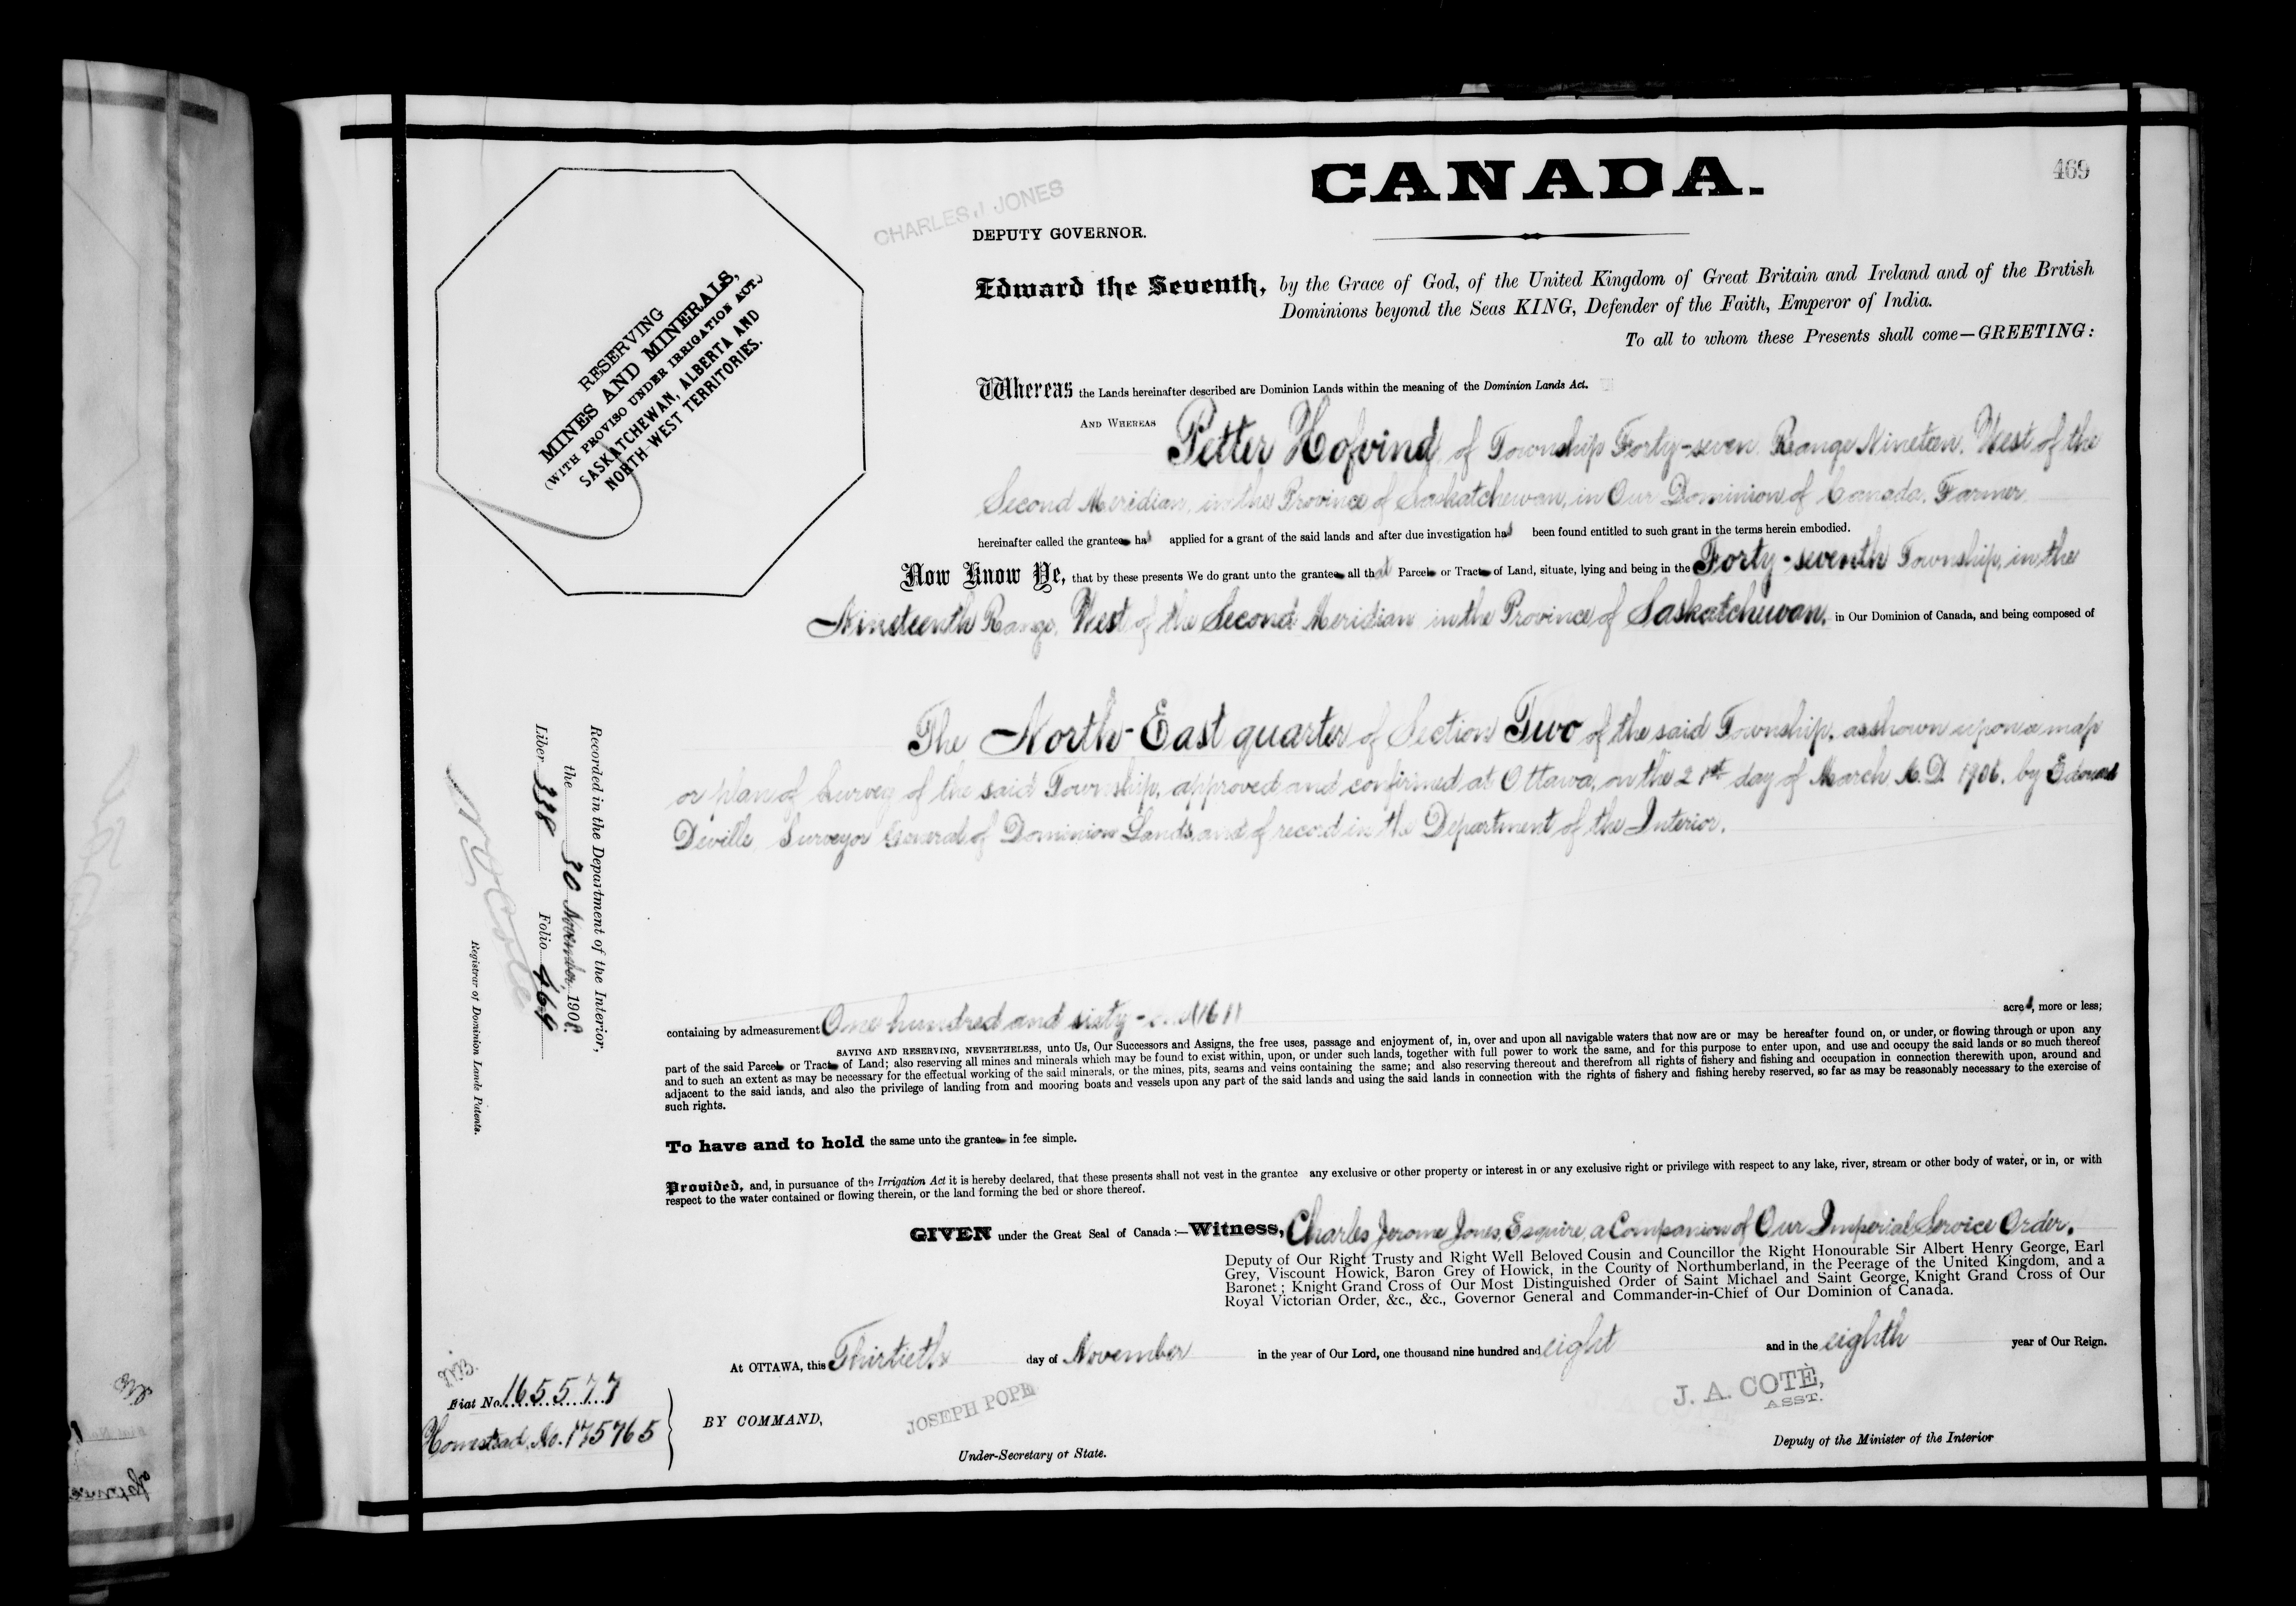 CANADA.
469
CHARLES J JONES
DEPUTY GOVERNOR.
RESERVING
MINES AND MINERALS,
(WITH PROVISO UNDER IRRIGATION ACT.)
SASKATCHEWAN, ALBERTA AND
NORTH-WEST TERRITORIES.
Edward the Seventh, by the Grace of God, of the United Kingdom of Great Britain and Ireland and of the British
Dominions beyond the Seas KING, Defender of the Faith, Emperor of India.
To all to whom these Presents shall come—GREETING:
Whereas the Lands hereinafter described are Dominion Lands within the meaning of the Dominion Lands Act.
AND WHEREAS Petter Hofvind, of Township Forty-seven, Range Nineteen, West of the
Second Meridian, in the Province of Saskatchewan, in Our Dominion of Canada, Farmer
hereinafter called the grantee has applied for a grant of the said lands and after due investigation has been found entitled to such grant in the terms herein embodied.
Now Know Ye, that by these presents We do grant unto the grantee all that Parcel or Tract of Land, situate, lying and being in the Forty-seventh Township, in the
Nineteenth Range, West of the Second Meridian in the Province of Saskatchewan, in Our Dominion of Canada, and being composed of
The North-East quarter of Section Two of the said Township, as shown upon a map
or plan of Survey of the said Township, approved and confirmed at Ottawa, on the 21st day of March A.D. 1906, by Edouard
Deville, Surveyor General of Dominion Lands, and of record in the Department of the Interior.
Recorded in the Department of the Interior,
the 30 November, 1908.
Liber 338 Folio 469
N O Coté
Registrar of Dominion Lands Patents.
containing by admeasurement One hundred and sixty-one (161) acres, more or less;
SAVING AND RESERVING, NEVERTHELESS, unto Us, Our Successors and Assigns, the free uses, passage and enjoyment of, in, over and upon all navigable waters that now are or may be hereafter found on, or under, or flowing through or upon any
part of the said Parcel or Tract of Land; also reserving all mines and minerals which may be found to exist within, upon, or under such lands, together with full power to work the same, and for this purpose to enter upon, and use and occupy the said lands or so much thereof
and to such an extent as may be necessary for the effectual working of the said minerals, or the mines, pits, seams and veins containing the same; and also reserving thereout and therefrom all rights of fishery and fishing and occupation in connection therewith upon, around and
adjacent to the said lands, and also the privilege of landing from and mooring boats and vessels upon any part of the said lands and using the said lands in connection with the rights of fishery and fishing hereby reserved, so far as may be reasonably necessary to the exercise of
such rights.
To have and to hold the same unto the grantee in fee simple.
Provided, and, in pursuance of the Irrigation Act it is hereby declared, that these presents shall not vest in the grantee any exclusive or other property or interest in or any exclusive right or privilege with respect to any lake, river, stream or other body of water, or in, or with
respect to the water contained or flowing therein, or the land forming the bed or shore thereof.
GIVEN under the Great Seal of Canada:—Witness, Charles Jerome Jones, Esquire, a Companion of Our Imperial Service Order,
Deputy of Our Right Trusty and Right Well Beloved Cousin and Councillor the Right Honourable Sir Albert Henry George, Earl
Grey, Viscount Howick, Baron Grey of Howick, in the County of Northumberland, in the Peerage of the United Kingdom, and a
Baronet; Knight Grand Cross of Our Most Distinguished Order of Saint Michael and Saint George, Knight Grand Cross of Our
Royal Victorian Order, &c., &c., Governor General and Commander-in-Chief of Our Dominion of Canada.
At OTTAWA, this Thirtieth day of November in the year of Our Lord, one thousand nine hundred and eight and in the eighth year of Our Reign.
Fiat No. 165577
Homestead No. 175765
BY COMMAND,
JOSEPH POPE
Under-Secretary of State.
J. A. COTÈ,
ASST.
Deputy of the Minister of the Interior